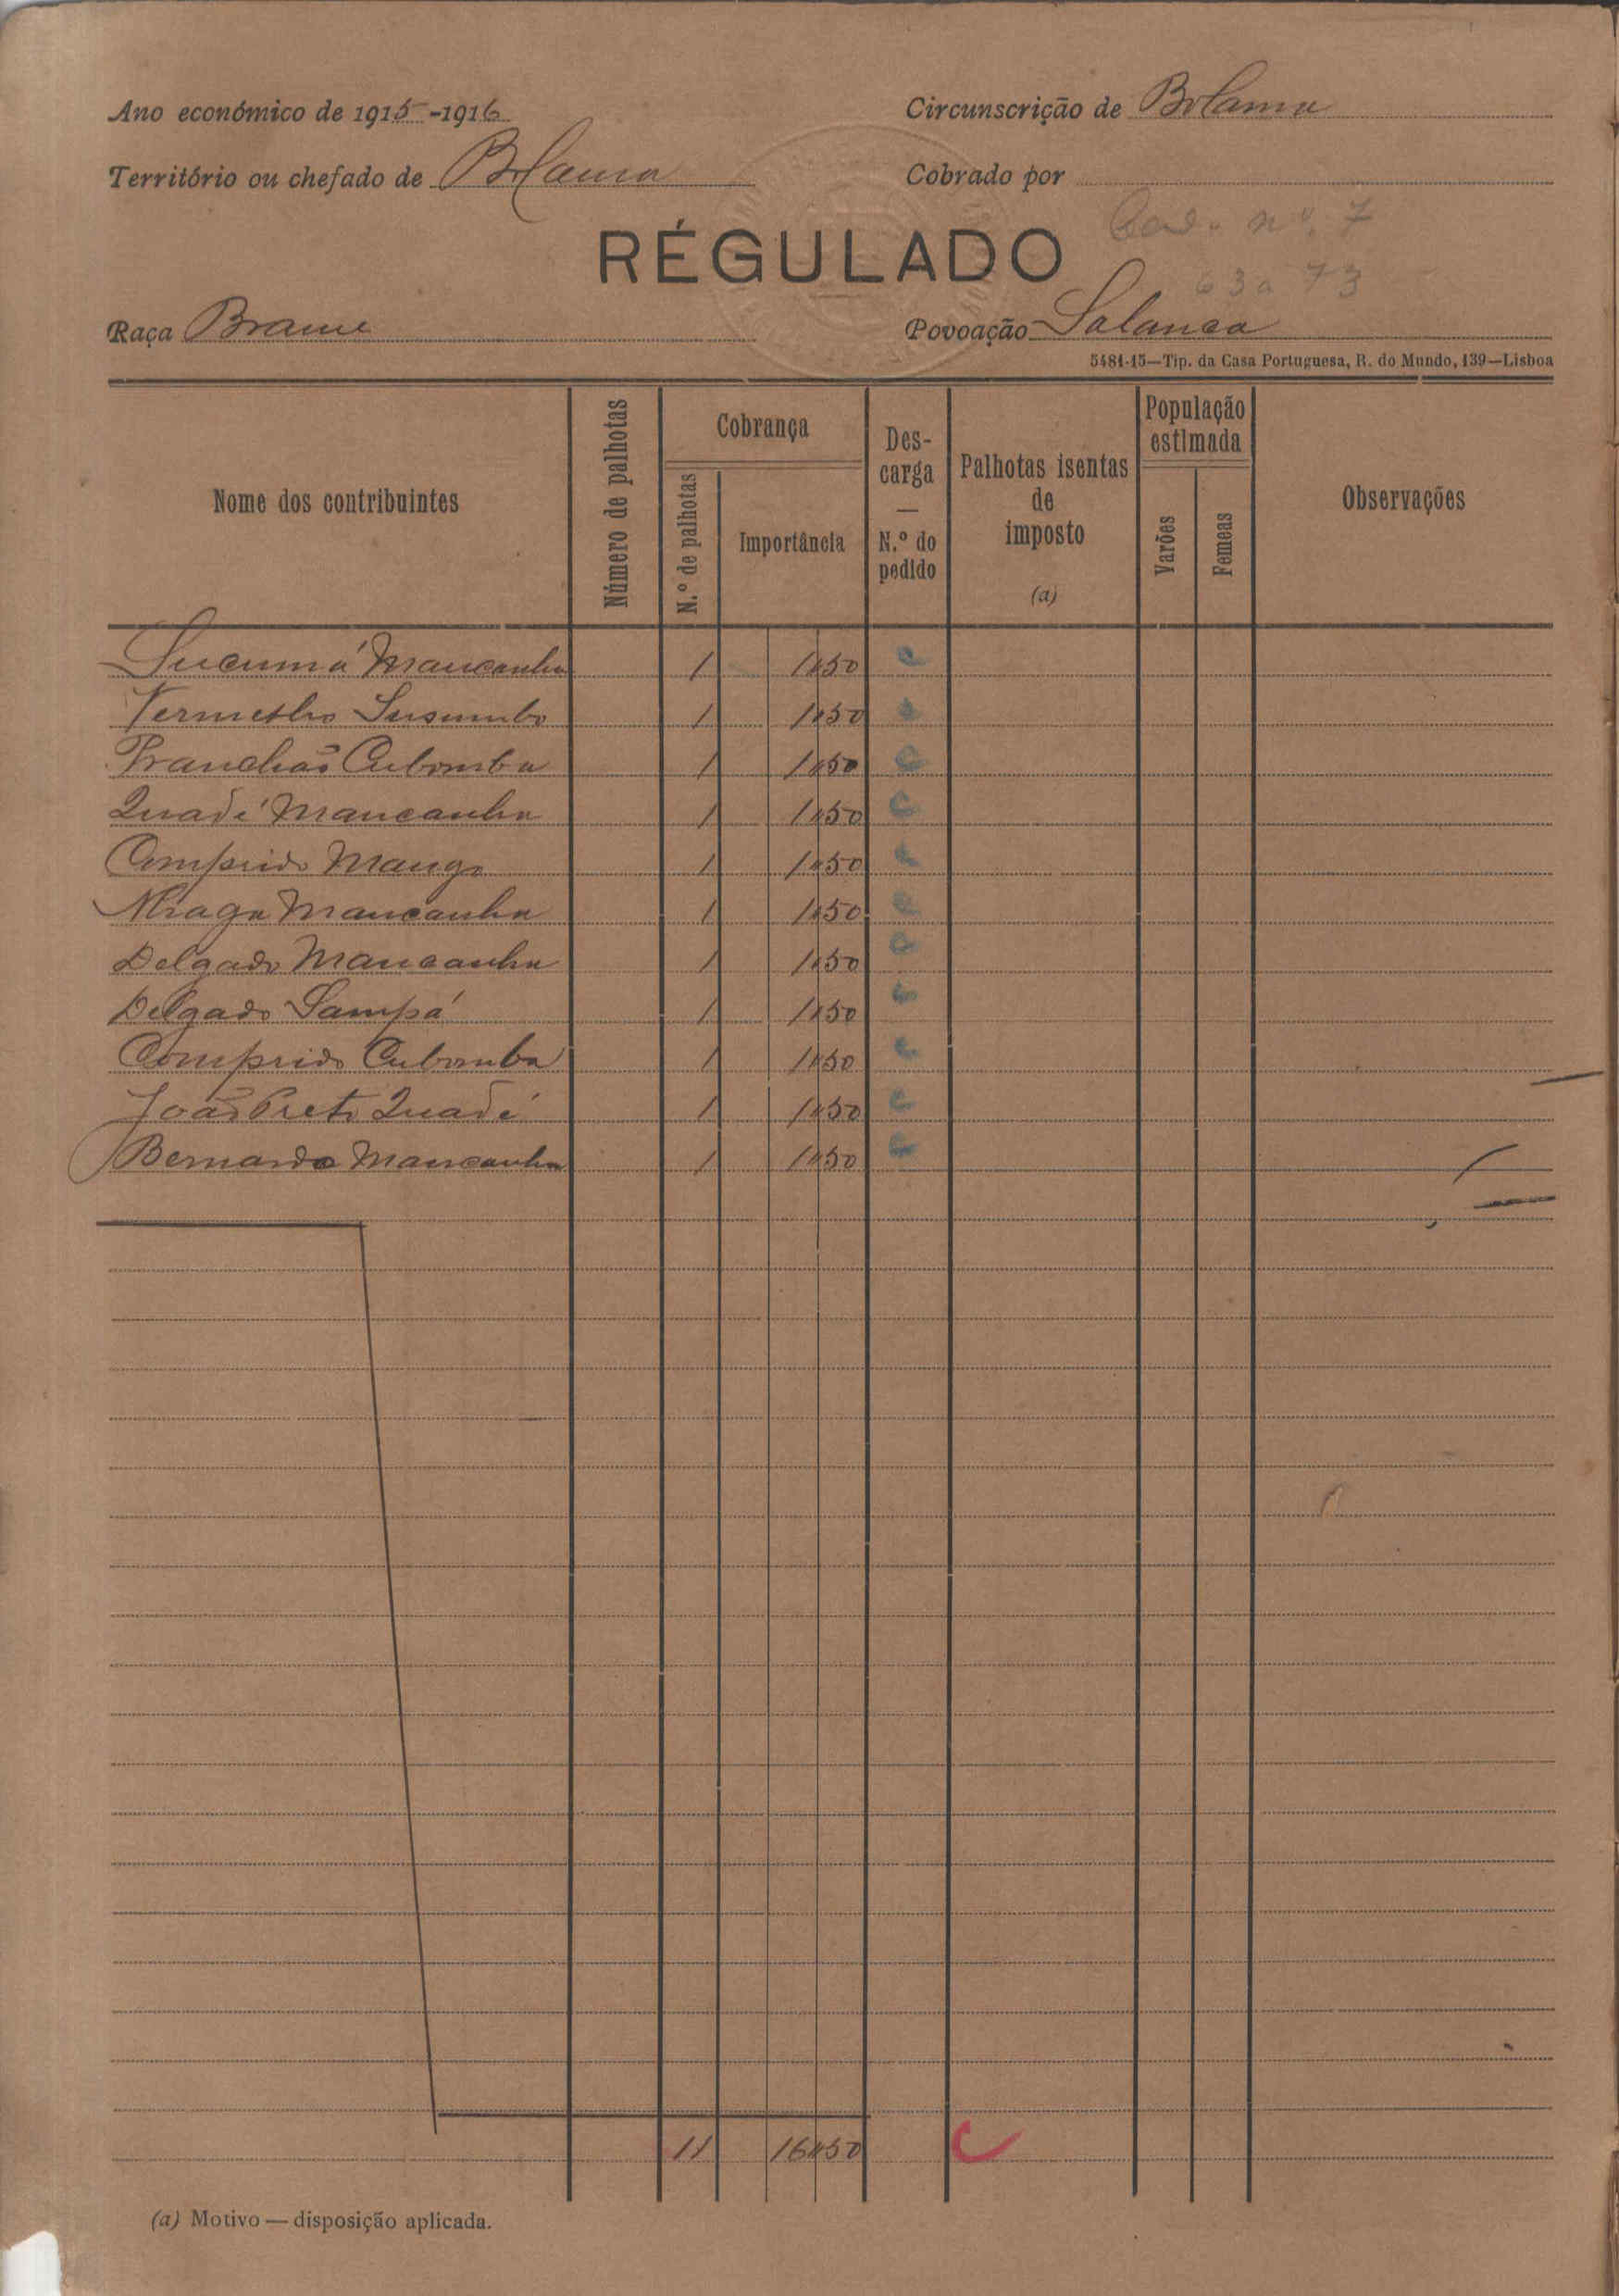 Ano económico de 1915-1916
Circunscrição de Bolama
Território ou chefado de Bolama
Cobrado por
Cad. nº. 7
RÉGULADO
63 a 73
Raça Brame
Povoação Salanca
5481-15—Tip. da Casa Portuguesa, R. do Mundo, 139—Lisboa
Nome dos contribuintes
Número de palhotas
Cobrança
N.º de palhotas
Importância
Descarga — N.º do pedido
Palhotas isentas de imposto (a)
População estimada
Varões
Femeas
Observações
Sucumá Mancanha 1 1$50 C
Vermelho Susumbo 1 1$50
Pranchão Cubomba 1 1$50 C
Quadé Mancanha 1 1$50 C
Comprido Mango 1 1$50 C
Nhaga Mancanha 1 1$50 C
Delgado Mancanha 1 1$50 C
Delgado Sampá 1 1$50 C
Comprido Cubomba 1 1$50 C
João Preto Quadé 1 1$50 C
Bernardo Mancanha 1 1$50 C
11 16$50 C
(a) Motivo — disposição aplicada.